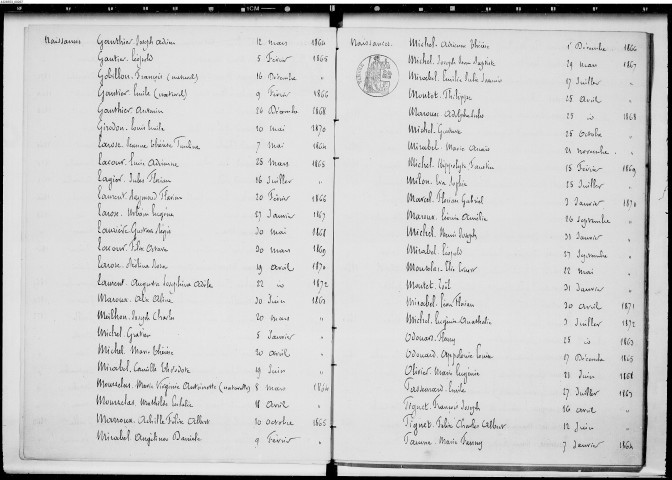 Naissances Gauthier Joseph Adrien 12 mars 1864
Gautier Léopold 5 Février 1865
Gobillon François (naturel) 16 Décembre "
Gautier Emile (naturel) 9 Février 1866
Gauthier Antonin 26 Décembre 1868
Girodon Louis Emile 20 mai 1870
Larose Jeanne Thérèse 7 mai 1864
Lacour Marie Adrienne 28 mars 1865
Lagier Jules Florian 16 Juillet "
Laurent Raymond Florian 20 Février 1866
Larose Urbain Eugène 27 Janvier 1867
Gustave Régis 30 mai 1868
Lacour Félix Octave 30 mars 1869
Larose Rosa 19 avril 1870
Laurent Augusta Joséphine Adèle 22 1872
Maroux Aline 30 Juin 1863
Milhon Joseph Charles 20 mars "
Michel Gratien 5 Janvier "
Michel Marie Thérèse 20 avril "
Mirabel Camille Théodote 19 Juin "
Mourelas Marie Virginie Antoinette (naturelle) 8 mars 1864
Mourelas Mathilde 18 Avril "
Marroux Achille Félix Albert 10 octobre 1865
Mirabel Angélina Danielle 9 Février "
Naissances Michel Adrienne Thérèse 1er Décembre 1866
Michel Joseph Jean Baptiste 29 mai 1867
Mirabel Emile Jules 27 Juillet "
Montet Philippe 28 Avril "
Maroux Adolphe Jules 25 1868
Michel Gustave 25 Octobre "
Mirabel Marie Anaïs 21 novembre "
Michel Hippolyte Faustin 15 Février 1869
Milon Sophie 25 Juillet "
Marcel Florian Gabriel 3 Janvier 1870
Maroux Léonie Amélie 26 Septembre "
Michel Henri Joseph 31 Janvier "
Mirabel Léopold 27 Septembre "
Mourelas Elie 12 mai "
Montet Joël 31 Janvier "
Mirabel Léon Florian 30 avril 1871
Michel Eugénie 3 Juillet 1872
Odouard Henry 25 1863
Odouard Appolonie Louise 27 Décembre 1865
Olivier Marie Eugénie 21 Juin 1868
Emile 27 Juillet 1863
Tignet François Joseph 16 avril "
Tignet Félix Charles Albert 12 Juin "
Marie Fanny 7 Janvier 1864